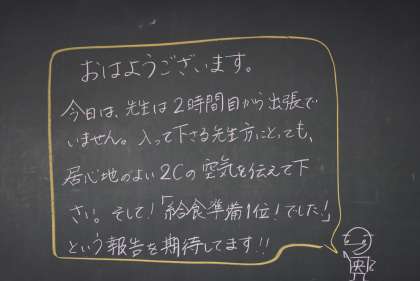 おはようございます。
今日は、先生は2時間目から出張で
いません。入って下さる先生方にとっても、
居心地のよい2Cの空気を伝えて下
さい。そして!「給食準備1位!でした!」
という報告を期待してます!!